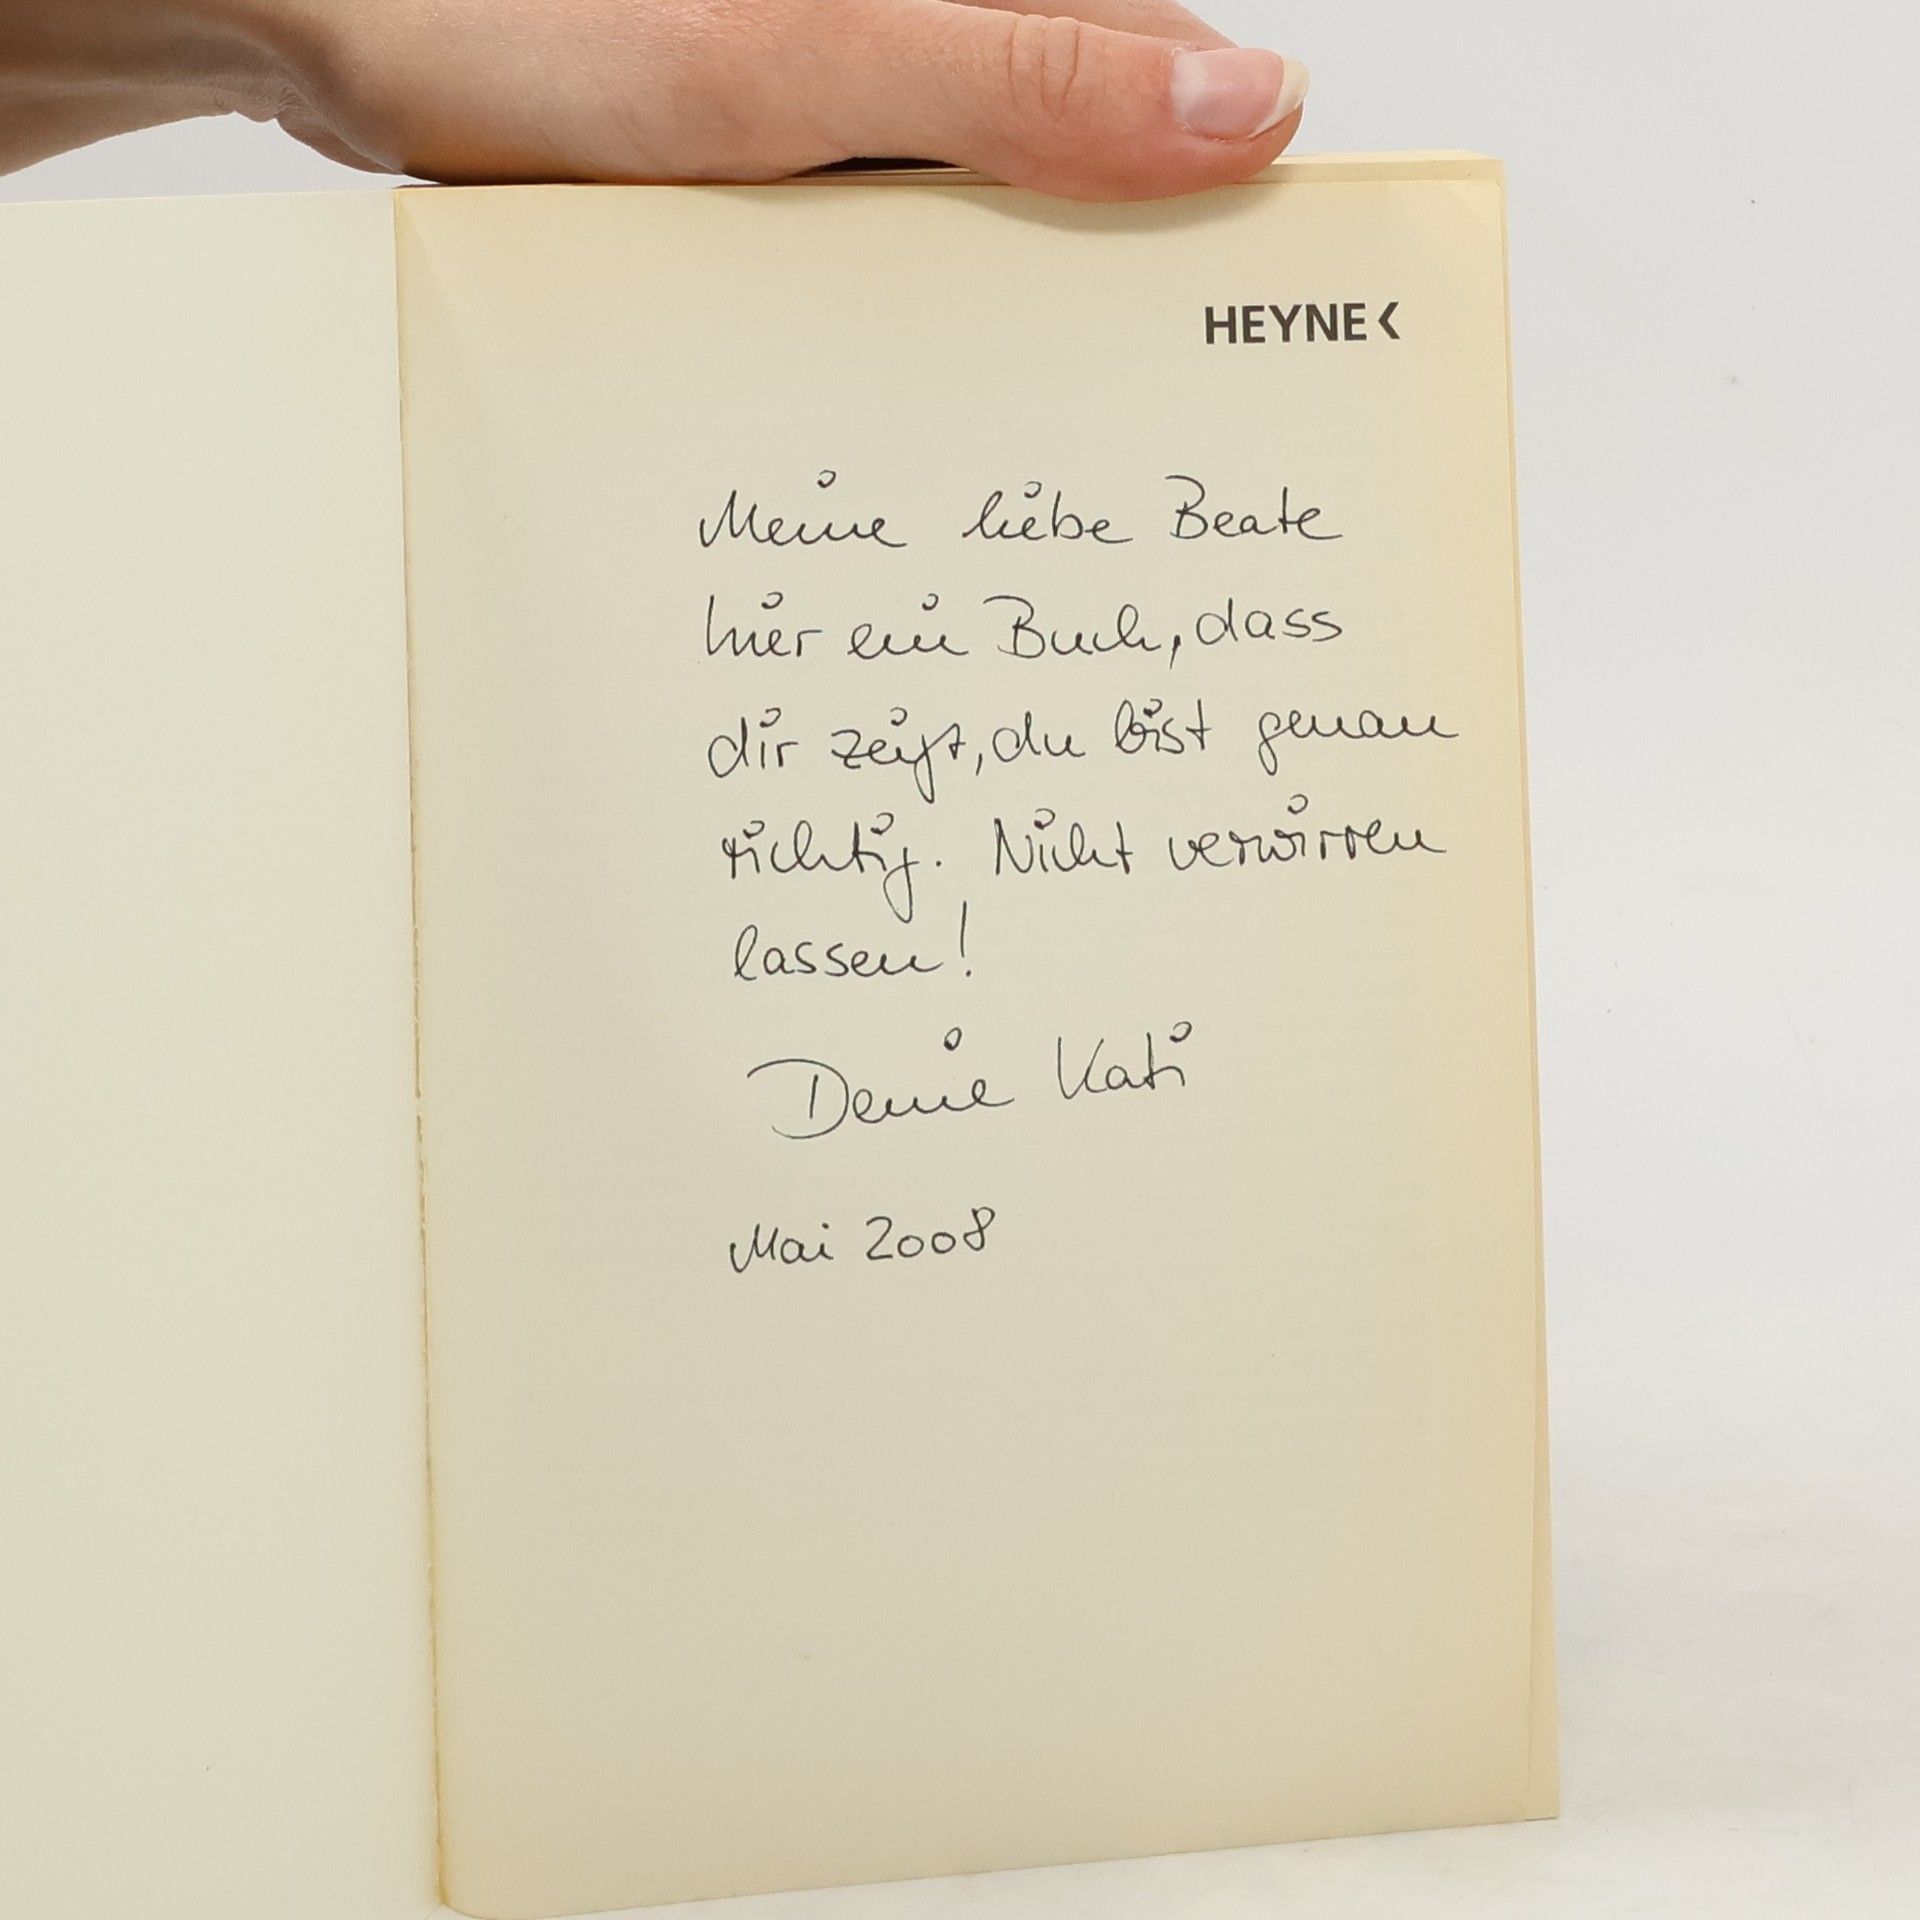 HEYNE<
Meine liebe Beate
hier ein Buch, dass
dir zeigt, du bist genau
richtig. Nicht verwirren
lassen!
Deine Kati
Mai 2008